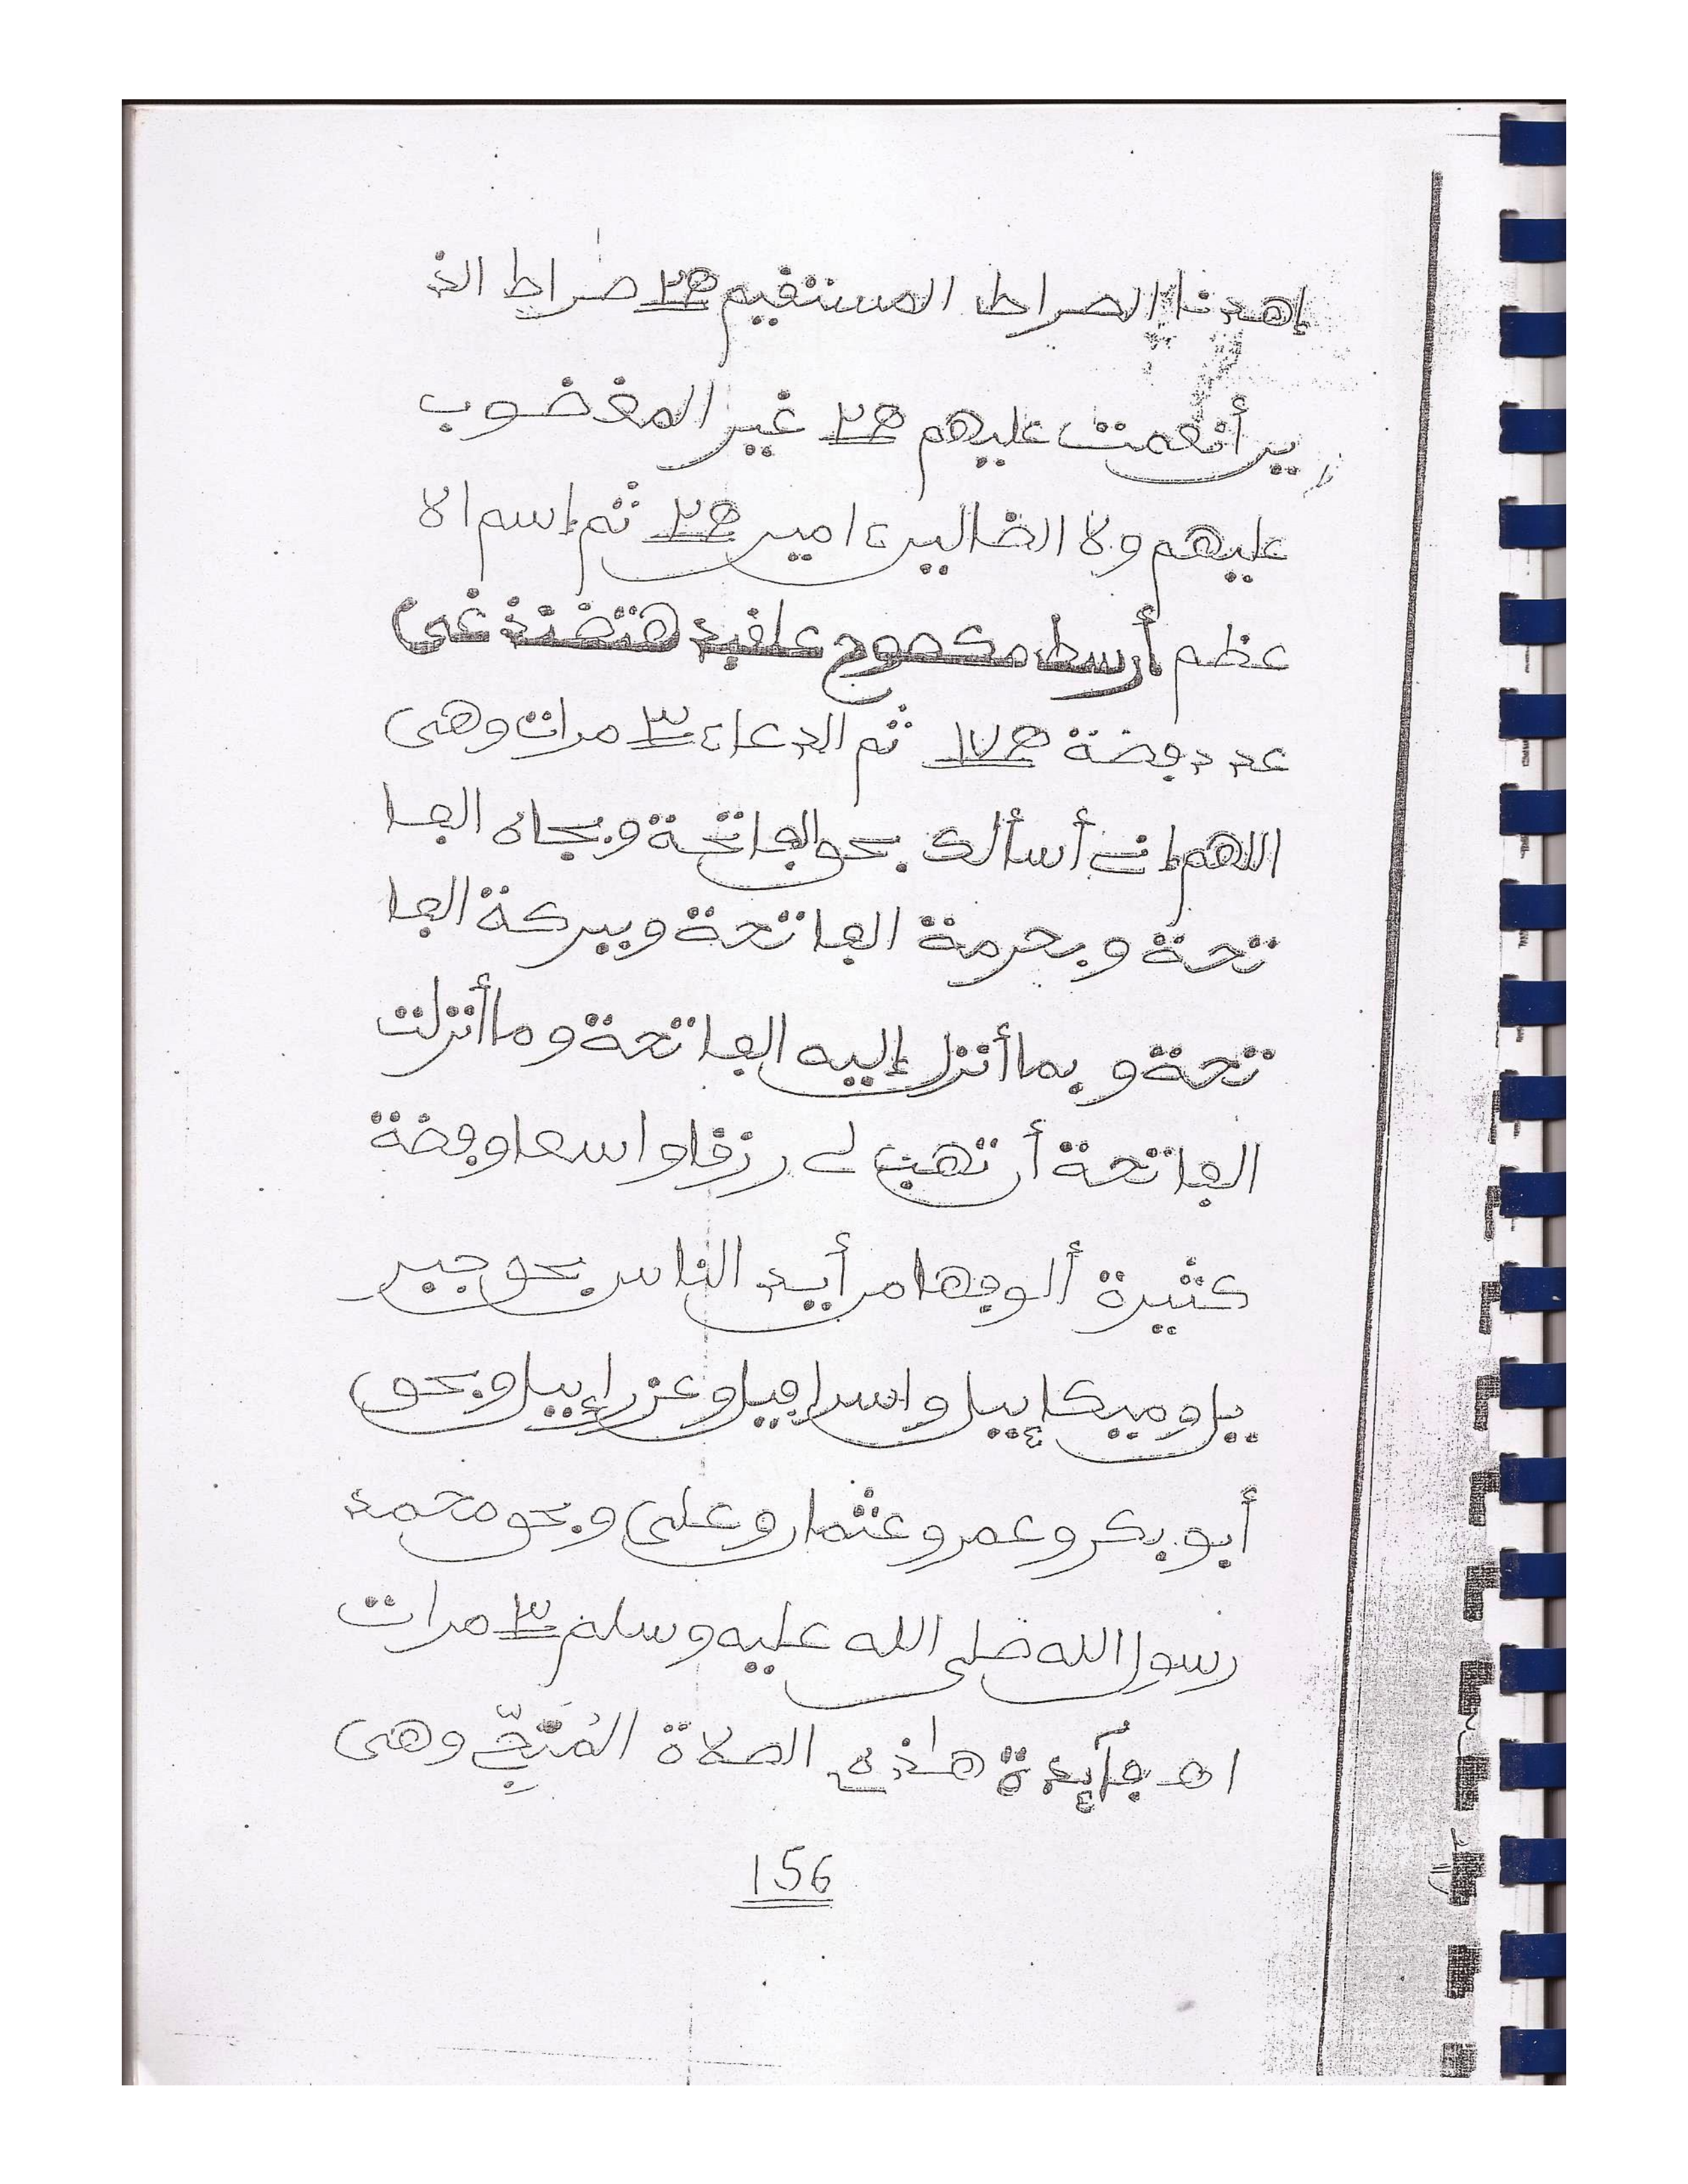 إهدنا الصراط المستقيم ٢ صراط الذ
ين أنعمت عليهم ٢ غير المغضوب
عليهم ولا الضالين ءامين ٢ ثم إسم الا
عظم
عدد فضة ١٧ ثم الدعاء ٣ مرات وهى
اللهم إنى أسألك بحق الفاتحة وبجاه الفا
تحة وبحرمة الفاتحة وببركة الفا
تحة وبما أنزل إليه الفاتحة وما أنزلت
الفاتحة أن تهب لى رزقا واسعا وفضة
كثيرة ألوفها من أيد الناس بحق جبر
يل وميكإيل واسرافيل وعزرإيل وبحق
أبو بكر وعمر وعثمان وعلى وبحق محمد
رسول الله صلى الله عليه وسلم ٣ مرات
اهـ فآئدة هاذه الصلاة المُنَجِّى وهى
156